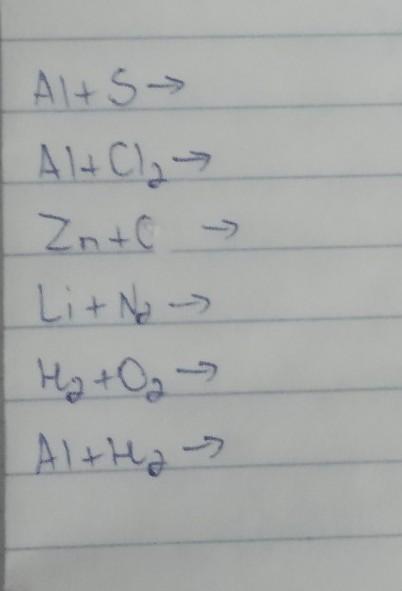 Al + S →
Al + Cl₂ →
Zn + C →
Li + N₂ →
H₂ + O₂ →
Al + H₂ →